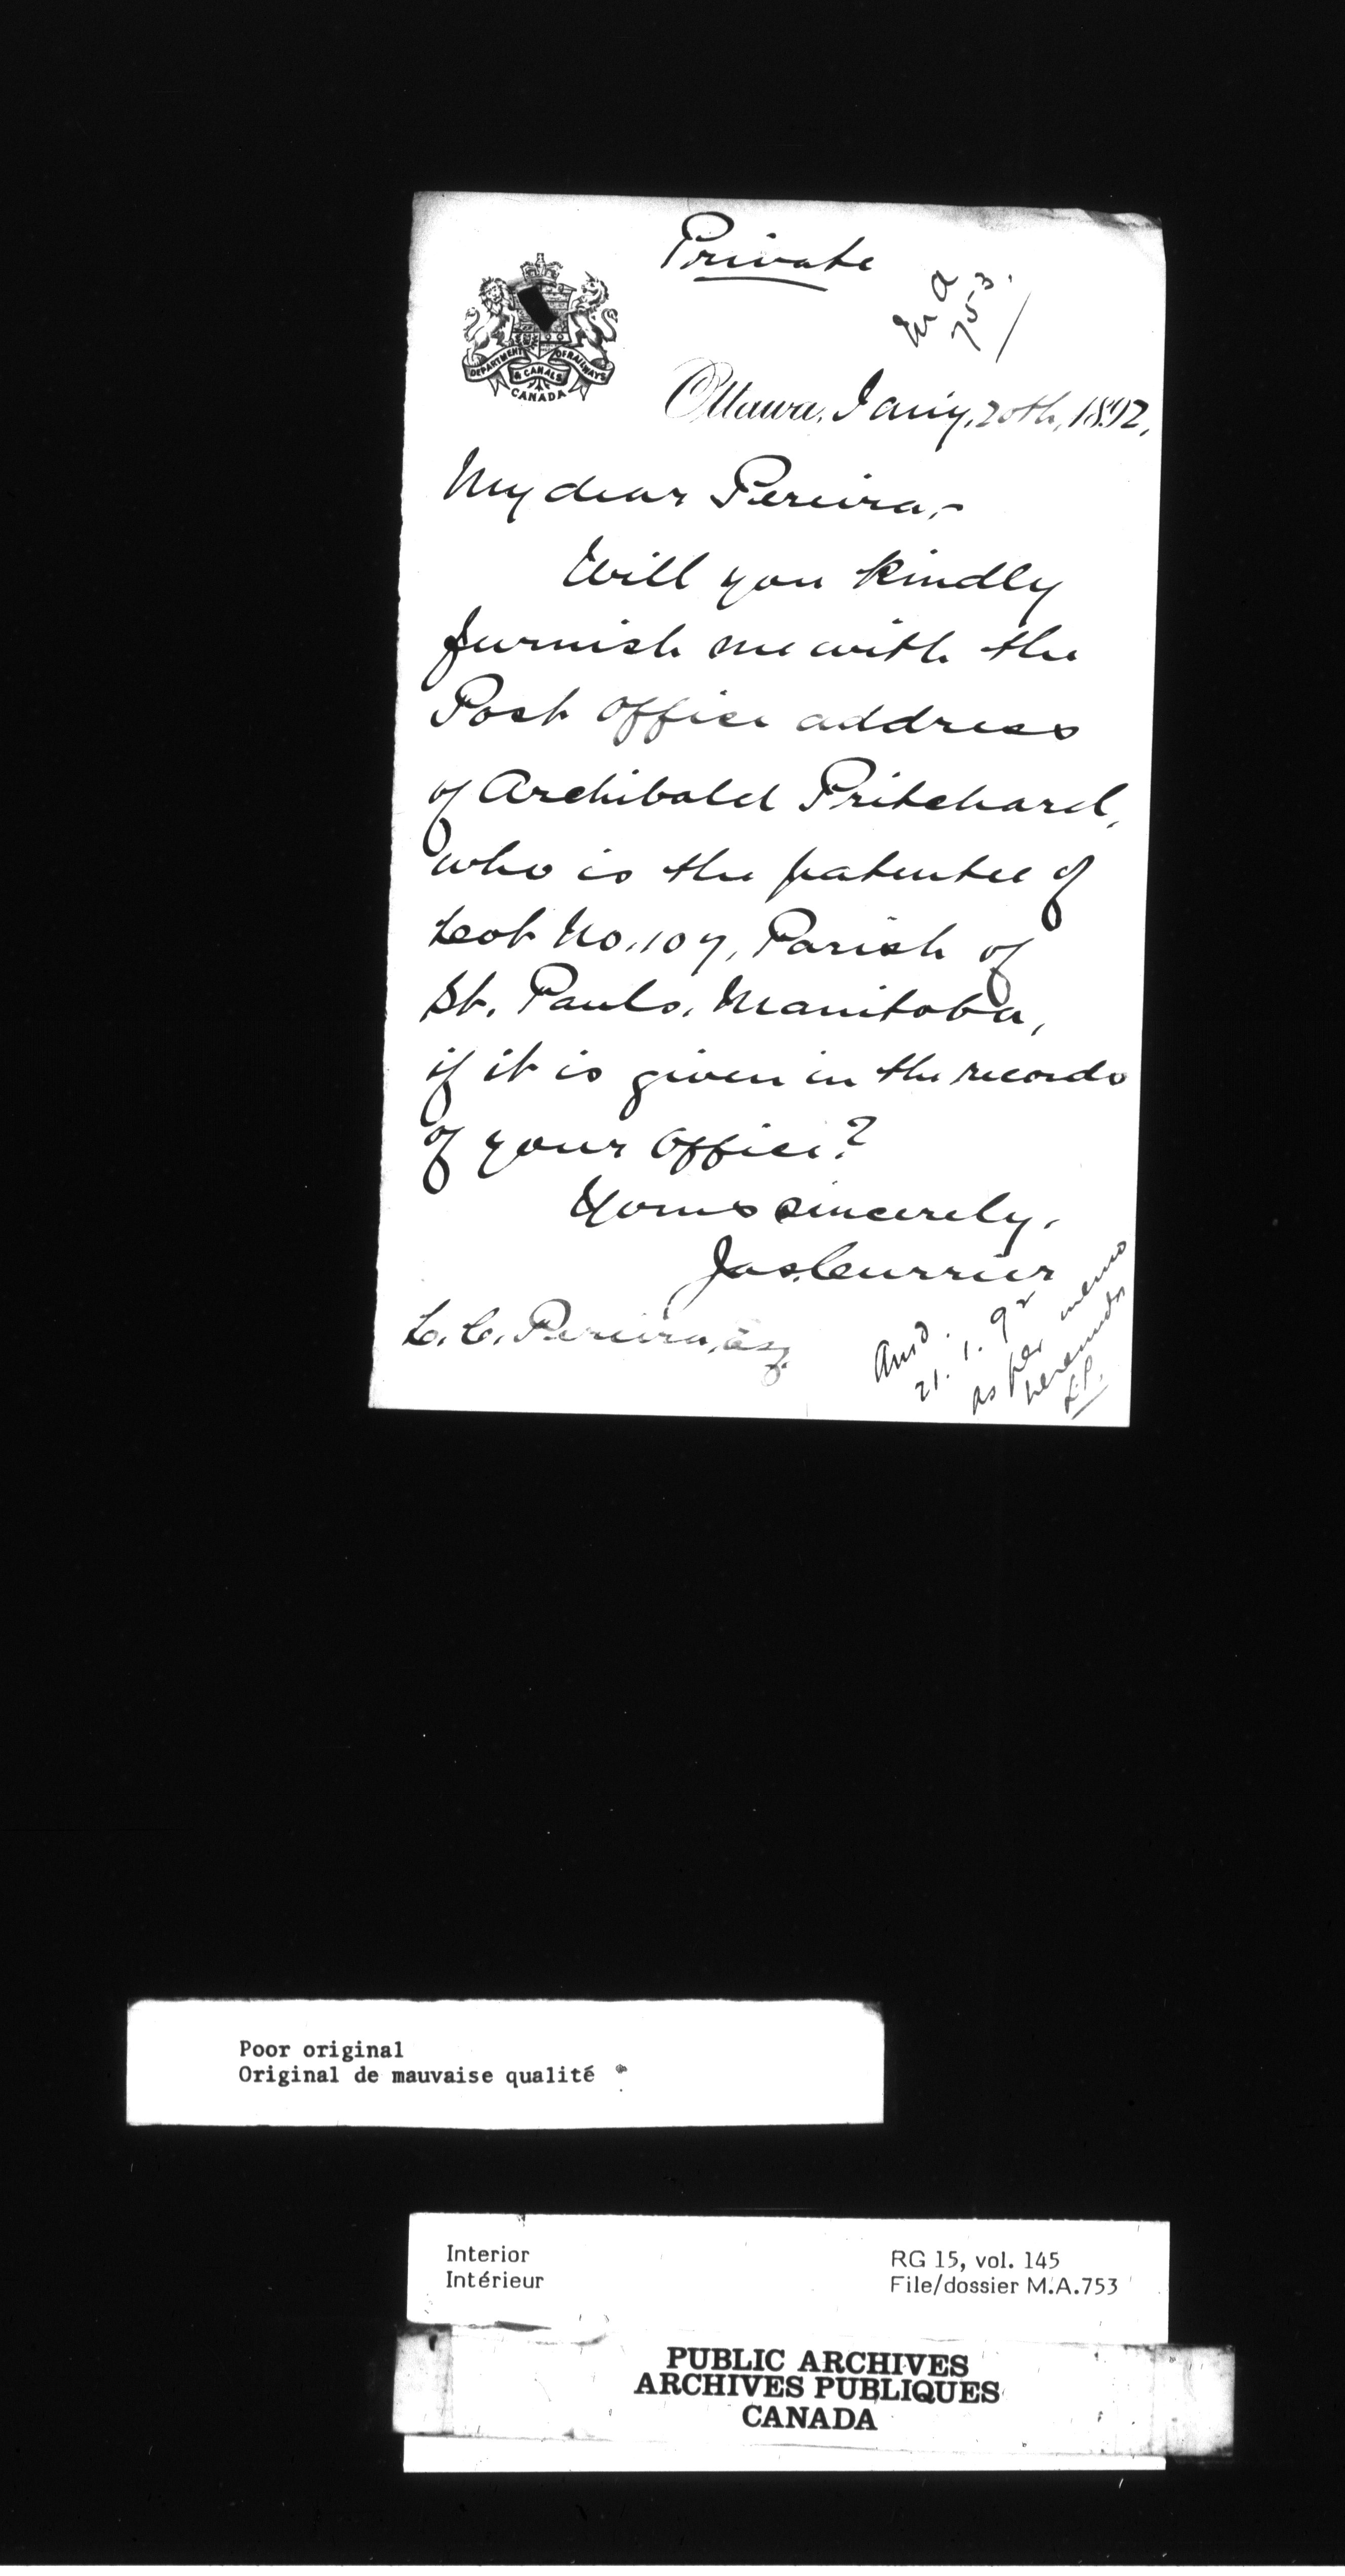 Private
M A
753.
DEPARTMENT OF RAILWAYS
& CANALS
CANADA
Ottawa, Jany, 20th, 1892,
My dear Pereira,-
Will you kindly
furnish me with the
Post Office address
of Archibald Pritchard,
who is the patentee of
Lot No. 107, Parish of
St. Pauls, Manitoba,
if it is given in the records
of your Office?
Yours sincerely,
Jas. Currier
L. C. Pereira, Esq.
Ansd.
21. 1. 92
as per memo
hereunder
L.P.
Poor original
Original de mauvaise qualité
Interior
Intérieur
RG 15, vol. 145
File/dossier M.A.753
PUBLIC ARCHIVES
ARCHIVES PUBLIQUES
CANADA